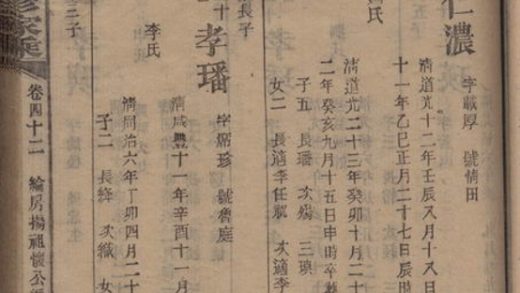 仁濃
字載厚 號情田
清道光十二年壬辰又月十八日
十一年乙巳正月二十七日辰時
氏
清道光二十三年癸卯十月二十
二年癸亥九月十五日申時卒
子五 長璠 次 三
女二 長適李任 次適李
長子
孝璠
字席珍 號魯庭
清咸豐十一年辛酉十一月
李氏
清同治六年丁卯四月二十
子二 長緯 次緎 女
三子
家乘
卷四十二 綸房揚祖懷公